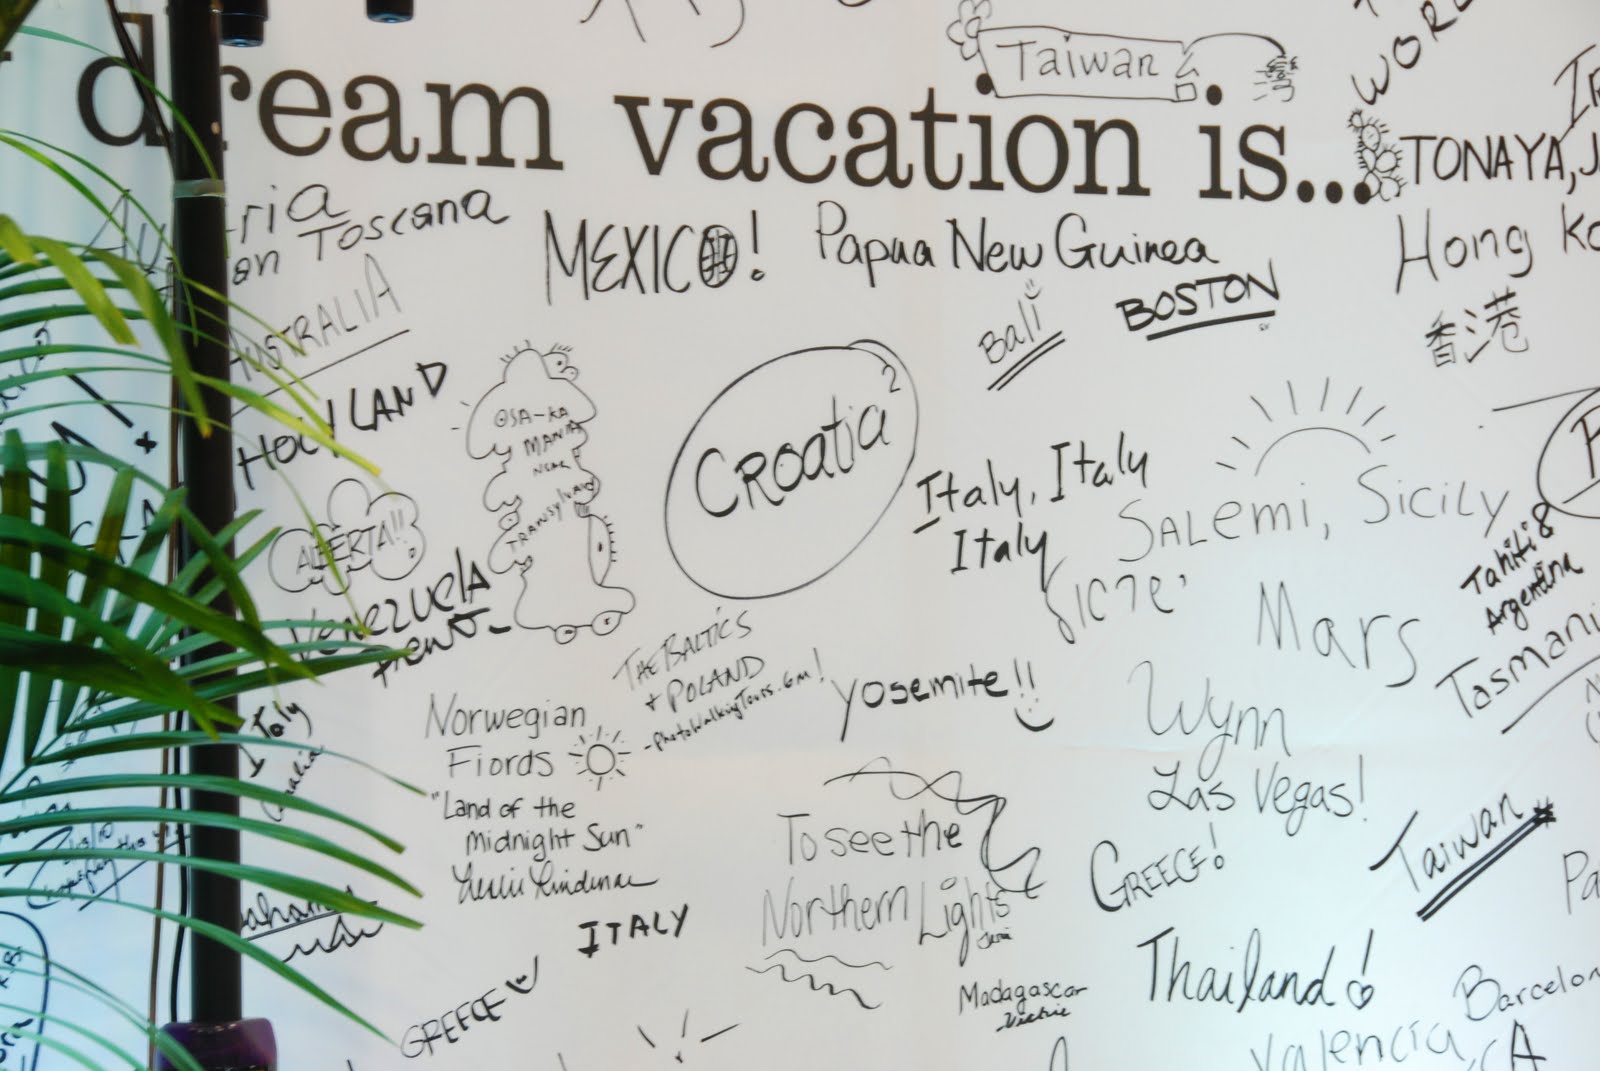 dream vacation is...
Taiwan
WOR
TONAYA, J
ria
on Toscana
MEXICO!
Papua New Guinea
Hong Ko
香港
AUSTRALIA
Bali
BOSTON
HOLY LAND
OSA-KA
MANIA
NEAR
TRANSYLVANIA
CROATIA
2
Italy, Italy
Italy
SALEMI, SICILY
ALBERTA!!
VENEZUELA
Tahiti &
Argentina
Mars
Tasmani
THE BALTICS
+ POLAND
-PHOTOWALKINGTOURS.COM!
Yosemite!!
Wynn
Las Vegas!
Norwegian
Fiords
"Land of the
Midnight Sun"
I Taly
To see the
Northern Lights
GREECE!
Taiwan
ahama
ITALY
GREECE
Madagascar
Thailand!
Barcelon
Valencia,